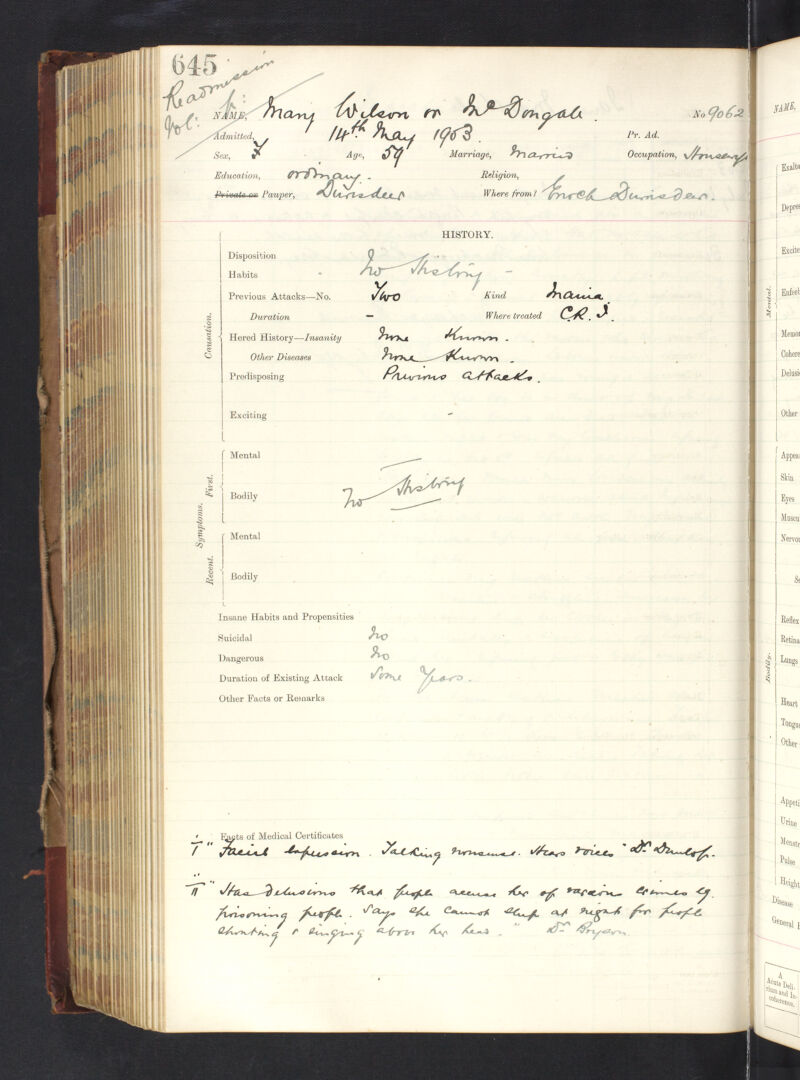 645
Readmission
Vol:
NAME, Mary Wilson or McDongale. No 9062
Admitted, 14th May 1903. Pr. Ad.
Sex, F Age, 59 Marriage, Married Occupation, Housewife
Education, ordinary. Religion,
Private or Pauper, Durisdeer Where from? Enoch Durisdeer.
HISTORY.
Causation.
Disposition
Habits No History
Previous Attacks—No. Two Kind Mania
Duration – Where treated C.R.I.
Hered History—Insanity None Known.
Other Diseases None Known.
Predisposing Previous attacks.
Exciting -
Symptoms.
First.
Mental
Bodily No History
Recent.
Mental
Bodily
Insane Habits and Propensities
Suicidal No
Dangerous No
Duration of Existing Attack Some Years.
Other Facts or Remarks
Facts of Medical Certificates
I " Facial Expression. Talking nonsense. Hears voices " Dr. Dunlop.
II " Has delusions that people accuse her of various crimes eg.
poisoning people. Says she cannot sleep at night for people
shouting & singing above her head. " Dr. Bryson
NAME,
Mental.
Memor
Cohere
Other
Bodily.
Skin
Eyes
Reflex
Retina
Lungs
Heart
Tongue
Other
Urine
Pulse
Height
Disease
General
A
Acute Deli-
rium and In-
coherence.